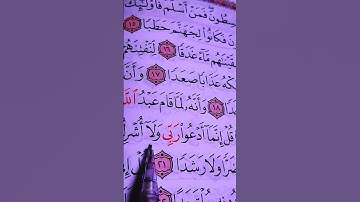 طُونَ فَمَنْ أَسْلَمَ فَأُولَٰٓئِكَ
نَ فَكَانُوا۟ لِجَهَنَّمَ حَطَبًا ١٥
يْنَٰهُم مَّآءً غَدَقًا ١٦ لِّنَفْتِنَهُمْ
كْهُ عَذَابًا صَعَدًا ١٧ وَأَنَّ
دًا ١٨ وَأَنَّهُۥ لَمَّا قَامَ عَبْدُ ٱللَّهِ
قُلْ إِنَّمَآ أَدْعُوا۟ رَبِّى وَلَآ أُشْرِ
ضَرًّا وَلَا رَشَدًا ٢١ قُلْ إِ